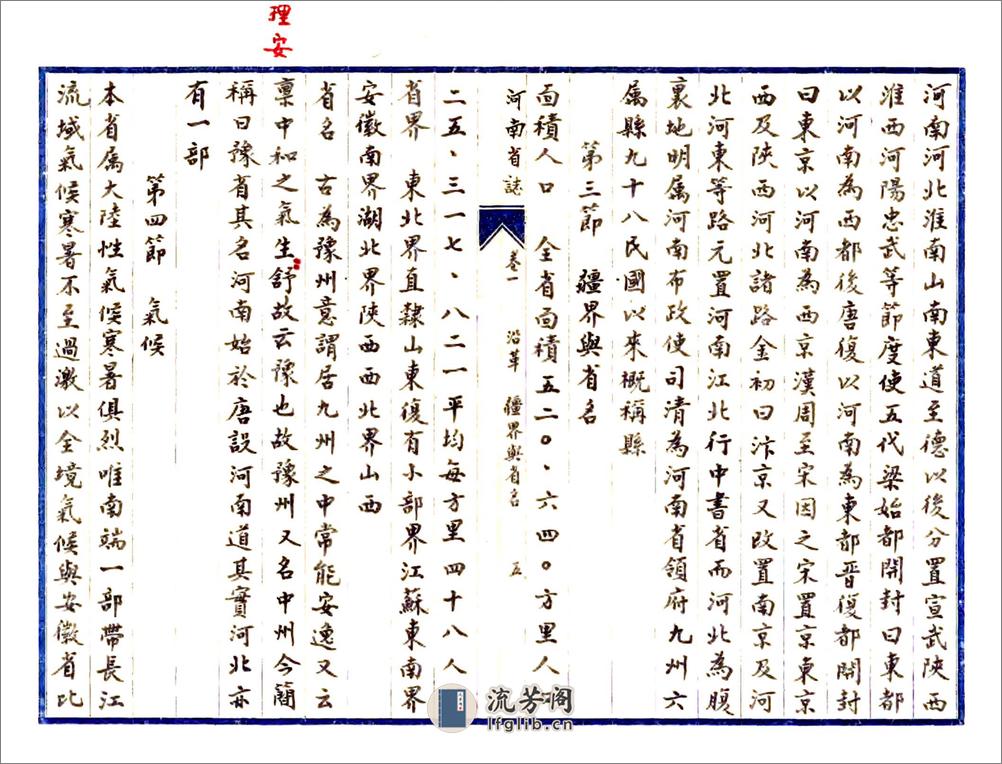 理安
河南河北淮南山南東道至德以後分置宣武陝西
淮西河陽忠武等節度使五代梁始都開封曰東都
以河南為西都後唐復以河南為東都晉復都開封
曰東京以河南為西京漢周至宋因之宋置京東京
西及陝西河北諸路金初曰汴京又改置南京及河
北河東等路元置河南江北行中書省而河北為腹
裏地明属河南布政使司清為河南省領府九州六
属縣九十八民國以來概稱縣
第三節 疆界與省名
面積人口 全省面積五二〇、六四〇方里人
河南省誌 卷一 沿革 疆界與省名 五
二五、三一七、八二一平均每方里四十八人
省界 東北界直隸山東復有小部界江蘇東南界
安徽南界湖北界陝西西北界山西
省名 古為豫州意謂居九州之中常能安逸又云
稟中和之氣生舒故云豫也故豫州又名中州今簡
稱曰豫省其名河南始於唐設河南道其實河北亦
有一部
第四節 氣候
本省属大陸性氣候寒暑俱烈唯南端一部帶長江
流域氣候寒暑不至過激以全境氣候與安徽省比
流芳阁
lfglib.cn